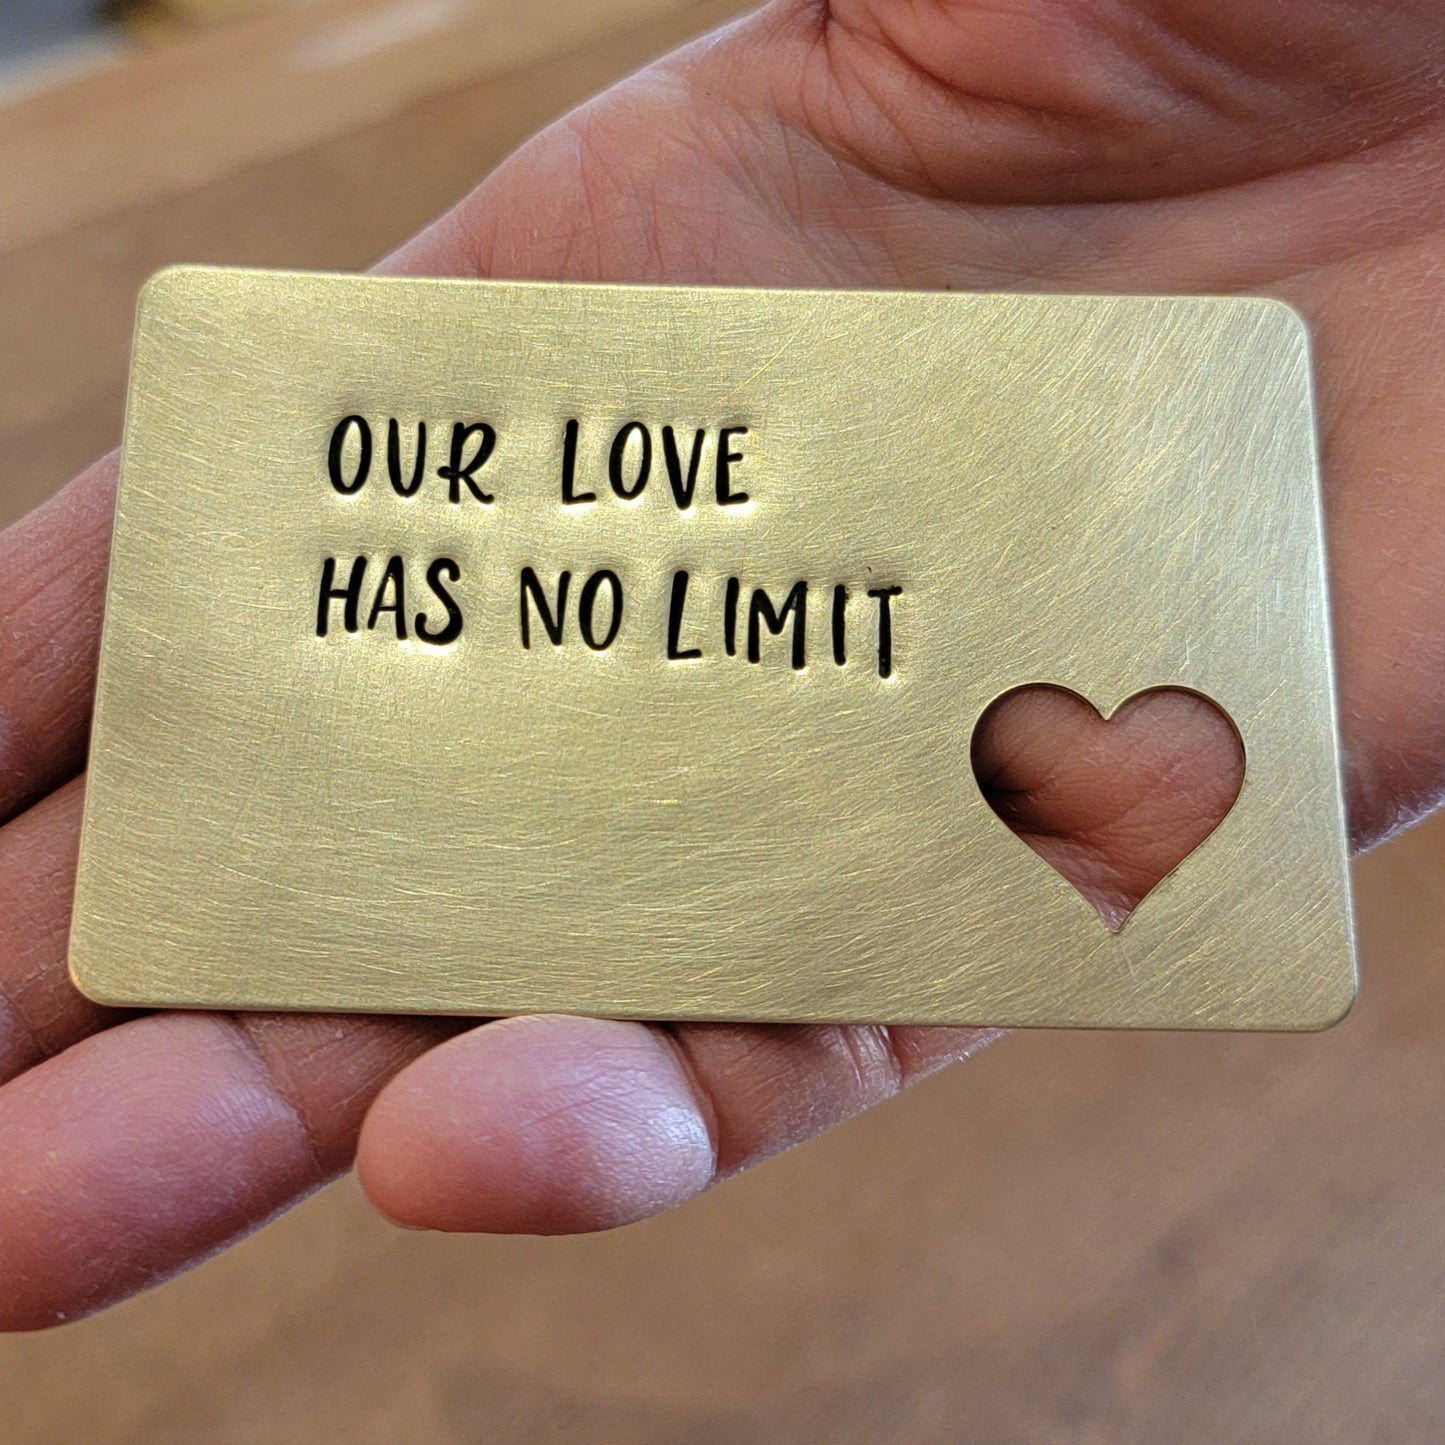 OUR LOVE
HAS NO LIMIT